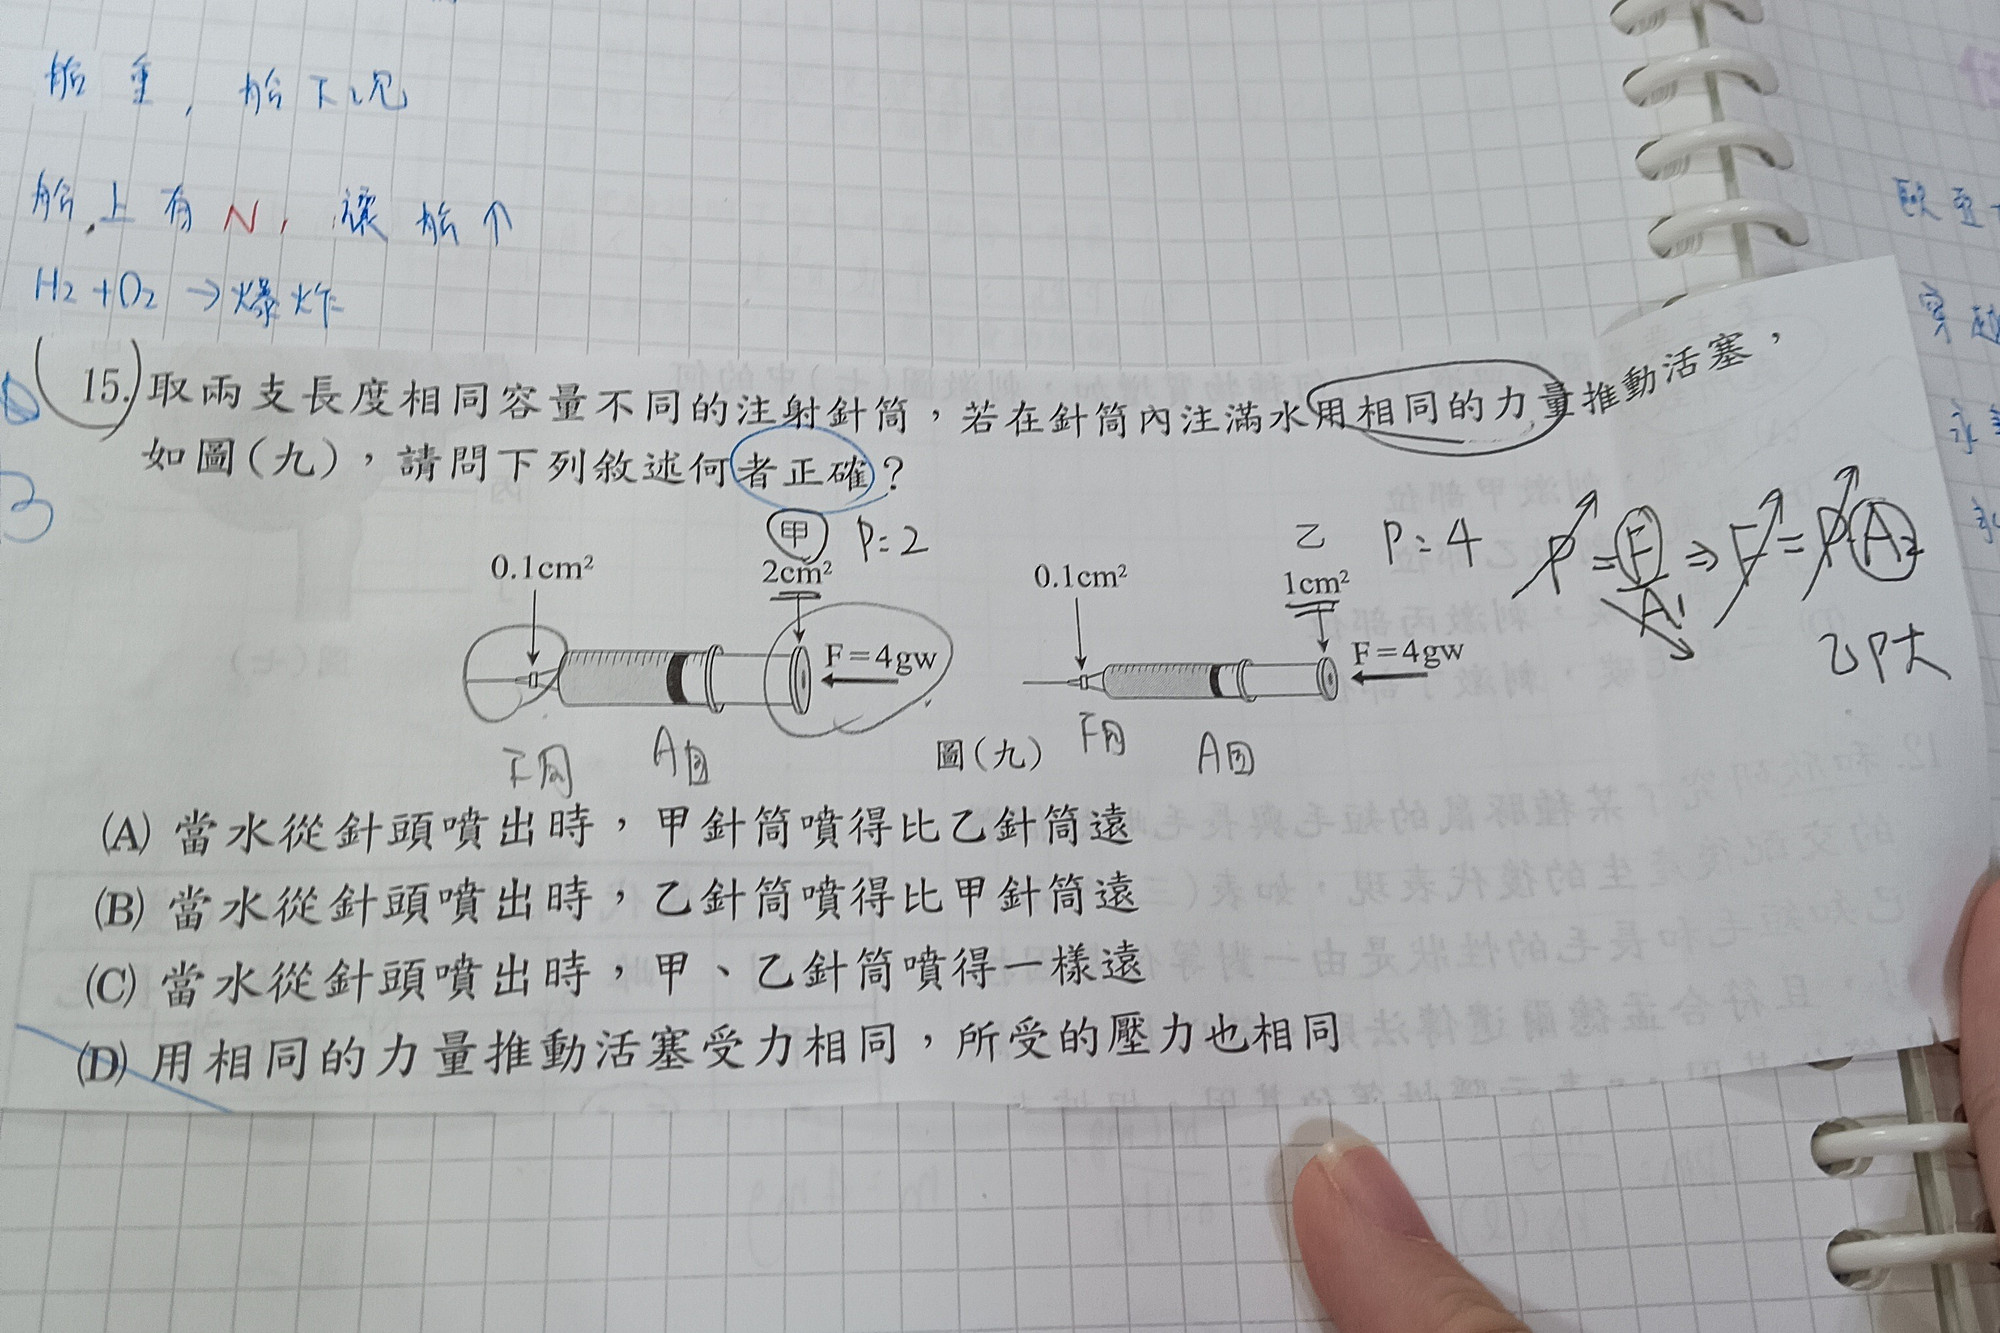 船重，船下沉
船上有N，讓船↑
H₂+O₂→爆炸
15.取兩支長度相同容量不同的注射針筒，若在針筒內注滿水用相同的力量推動活塞，
如圖(九)，請問下列敘述何者正確？
B
甲 P=2
0.1cm² 2cm²
F=4gw
乙 P=4
0.1cm² 1cm²
F=4gw
P=F/A₁⇒F=PA₂
乙P大
下同 A同
圖(九)
下同 A同
(A) 當水從針頭噴出時，甲針筒噴得比乙針筒遠
(B) 當水從針頭噴出時，乙針筒噴得比甲針筒遠
(C) 當水從針頭噴出時，甲、乙針筒噴得一樣遠
(D) 用相同的力量推動活塞受力相同，所受的壓力也相同